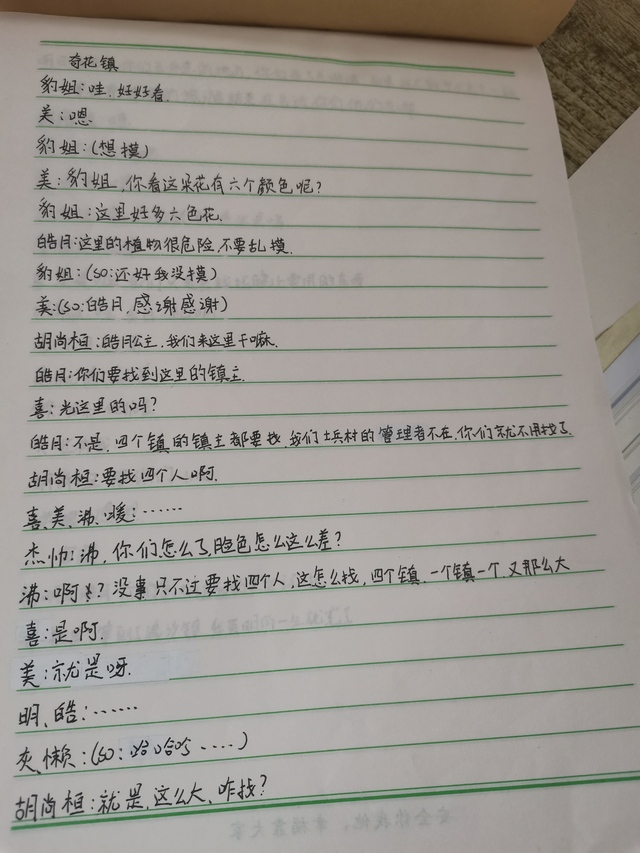 奇花镇
豹姐:哇,好好看.
美:嗯.
豹姐:(想摸)
美:豹姐,你看这朵花有六个颜色呢?
豹姐:这里好多六色花.
皓月:这里的植物很危险,不要乱摸.
豹姐:(SO:还好我没摸)
美:(SO:皓月,感谢感谢)
胡尚桓:皓月公主,我们来这里干嘛.
皓月:你们要找到这里的镇主.
喜:光这里的吗?
皓月:不是,四个镇的镇主都要找,我们士兵村的管理者不在,你们就不用找了.
胡尚桓:要找四个人啊.
喜、美、沸、暖:……
杰帅:沸,你们怎么了,脸色怎么这么差?
沸:啊?没事只不过要找四个人,这怎么找,四个镇.一个镇一个.又那么大
喜:是啊.
美:就是呀.
明、皓:……
灰、懒:(SO:哈哈哈....)
胡尚桓:就是,这么大、咋找?